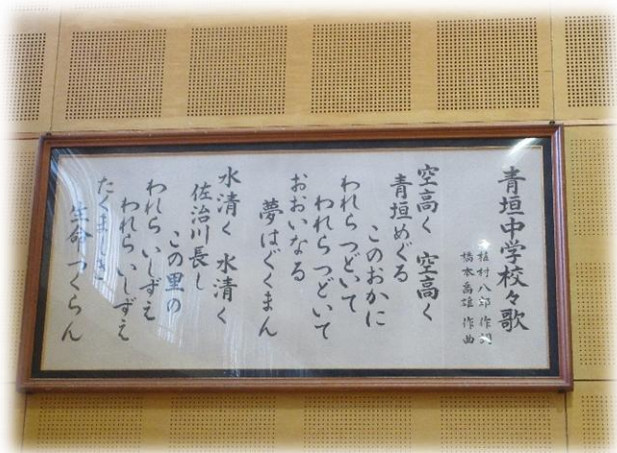 青垣中学校々歌
植村八郎 作詞
橋本 作曲
空高く 空高く
青垣めぐる
このおかに
われらつどいて
われらつどいて
おおいなる
夢はぐくまん
水清く 水清く
佐治川長し
この里の
われらいしずえ
われらいしずえ
たくましき
生命つくらん